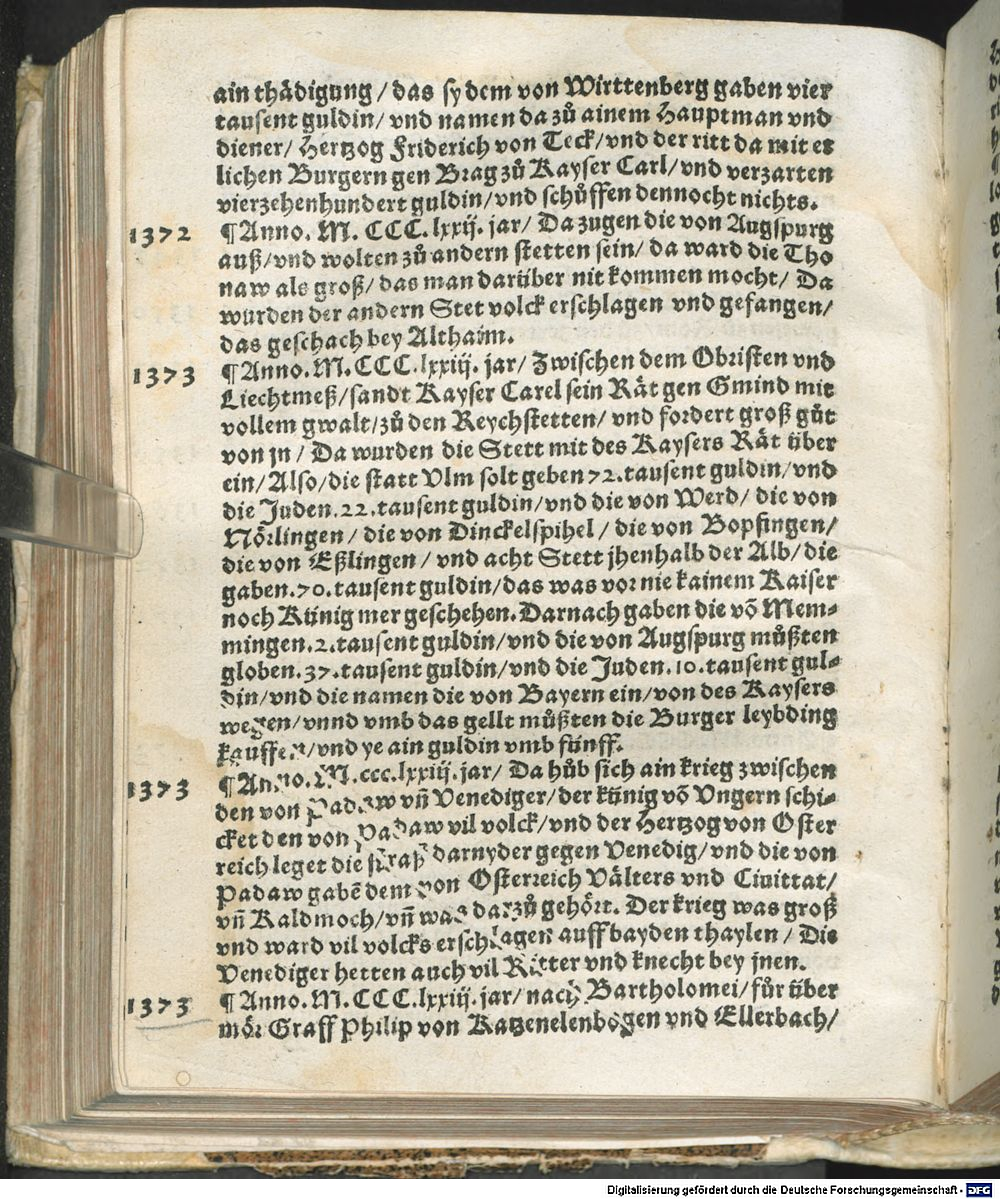 ain thådigung / das sy dem von Wirttenberg gaben vier
tausent guldin / vnd namen da zů ainem Hauptman vnd
diener / Hertzog Friderich von Teck / vnd der ritt da mit et
lichen Burgern gen Brag zů Kayser Carl / vnd verzarten
vierzehenhundert guldin / vnd schůffen dennocht nichts.
1372 ¶ Anno. M. CCC. lxxij. jar / Da zugen die von Augspurg
auß / vnd wolten zů andern stetten sein / da ward die Tho
naw als groß / das man darüber nit kommen mocht / Da
wurden der andern Stet volck erschlagen vnd gefangen /
das geschach bey Althaim.
1373 ¶ Anno. M. CCC. lxxiij. jar / Zwischen dem Obristen vnd
Liechtmeß / sandt Kayser Carel sein Rät gen Gmind mit
vollem gwalt / zů den Reychstetten / vnd fordert groß gůt
von jn / Da wurden die Stett mit des Kaysers Rät über
ein / Also / die statt Vlm solt geben 72. tausent guldin / vnd
die Juden. 22. tausent guldin / vnd die von Werd / die von
Nörlingen / die von Dinckelspihel / die von Bopfingen /
die von Eßlingen / vnd acht Stett jhenhalb der Alb / die
gaben. 70. tausent guldin / das was vor nie kainem Kaiser
noch Künig mer geschehen. Darnach gaben die võ Mem-
mingen. 2. tausent guldin / vnd die von Augspurg můßten
globen. 37. tausent guldin / vnd die Juden. 10. tausent gul-
din / vnd die namen die von Bayern ein / von des Kaysers
wegen / vnnd vmb das gellt můßten die Burger leybding
kauffen / vnd ye ain guldin vmb fünff.
1373 ¶ Anno. M. ccc. lxxiij. jar / Da hůb sich ain krieg zwischen
den von Padaw vñ Venediger / der künig võ Vngern schi-
cket den von Padaw vil volck / vnd der Hertzog von Oster
reich leget die straß darnyder gegen Venedig / vnd die von
Padaw gabẽ dem von Osterreich Välters vnd Ciuittat /
vñ Kaldmoch / vñ was darzů gehört. Der krieg was groß
vnd ward vil volcks erschlagen auff bayden thaylen / Die
Venediger hetten auch vil Ritter vnd knecht bey jnen.
1373 ¶ Anno. M. CCC. lxxiij. jar / nach Bartholomei / für über
mör Graff Philip von Katzenelenbogen vnd Ellerbach /
Digitalisierung gefördert durch die Deutsche Forschungsgemeinschaft - DFG